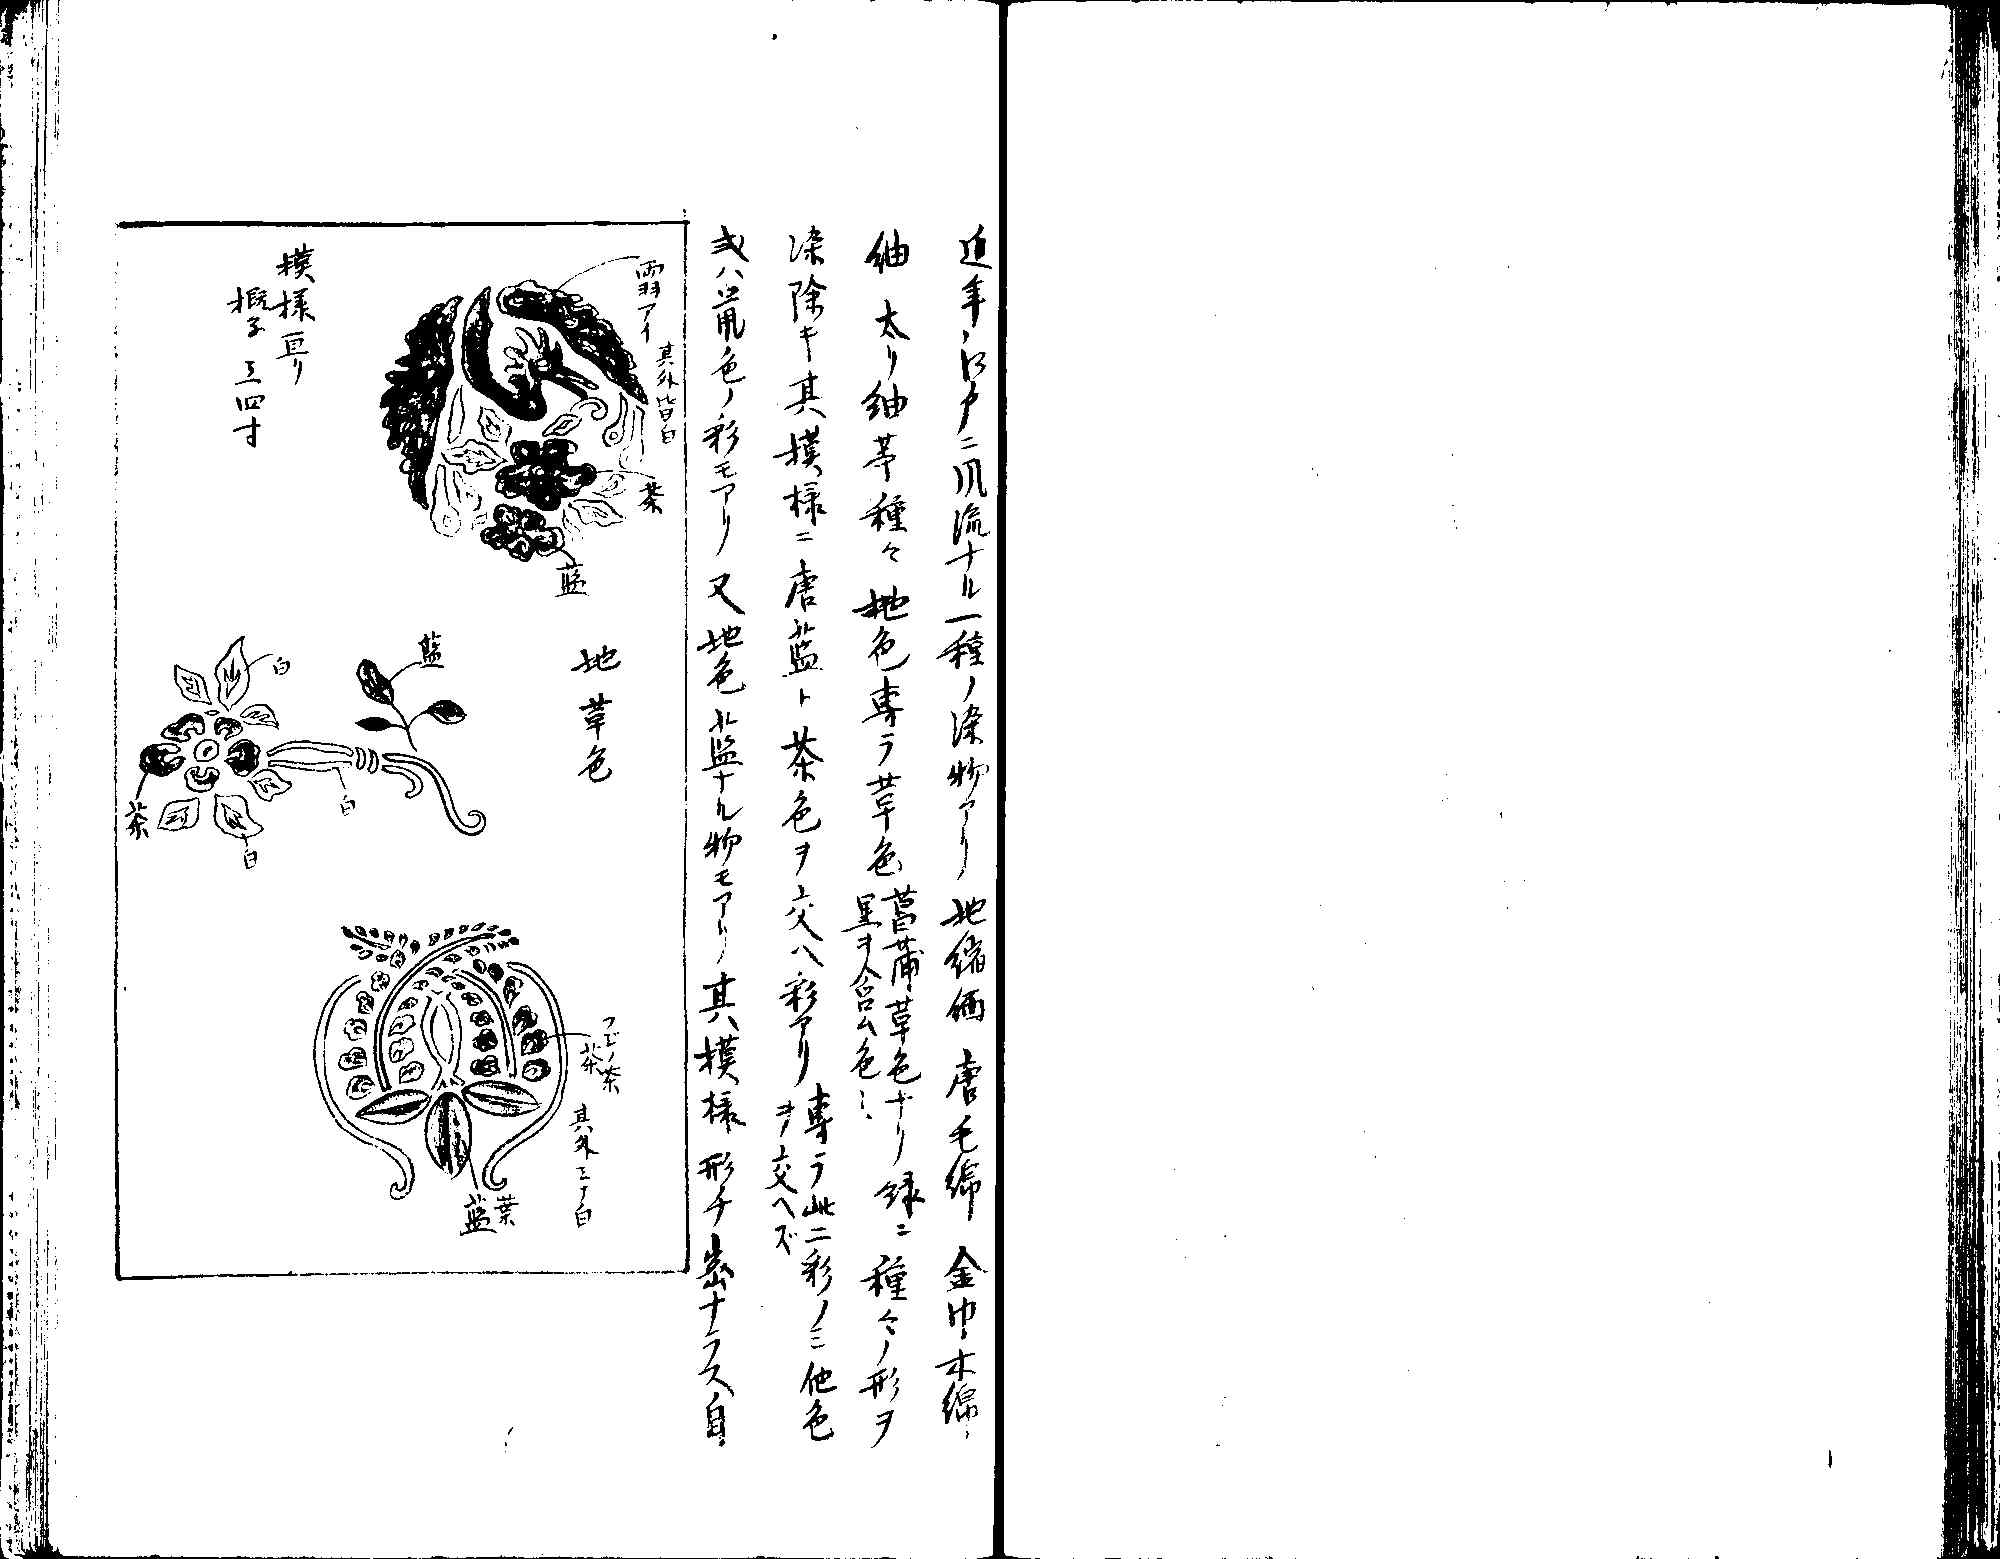 近年江戸ニ風流ナル一種ノ染物アリ 地縮緬 唐毛綿 金巾木綿
紬 太リ紬等種々 地色専ラ草色 菖蒲草色ナリ緑ニ
黒ヲ含ム色 種々ノ形ヲ
染除キ其模様ニ唐藍ト茶色ヲ交ヘ彩アリ 専ラ此二彩ノミ他色
ヲ交ヘズ
或ハ鼠色ノ彩モアリ 又地色藍ナル物モアリ 其模様形チ密ナラス自
羽アイ
其外皆白
茶
藍
模様亘リ
概子三四寸
地草色
藍
白
白
茶
白
茶
茶
其外ミナ白
葉
藍